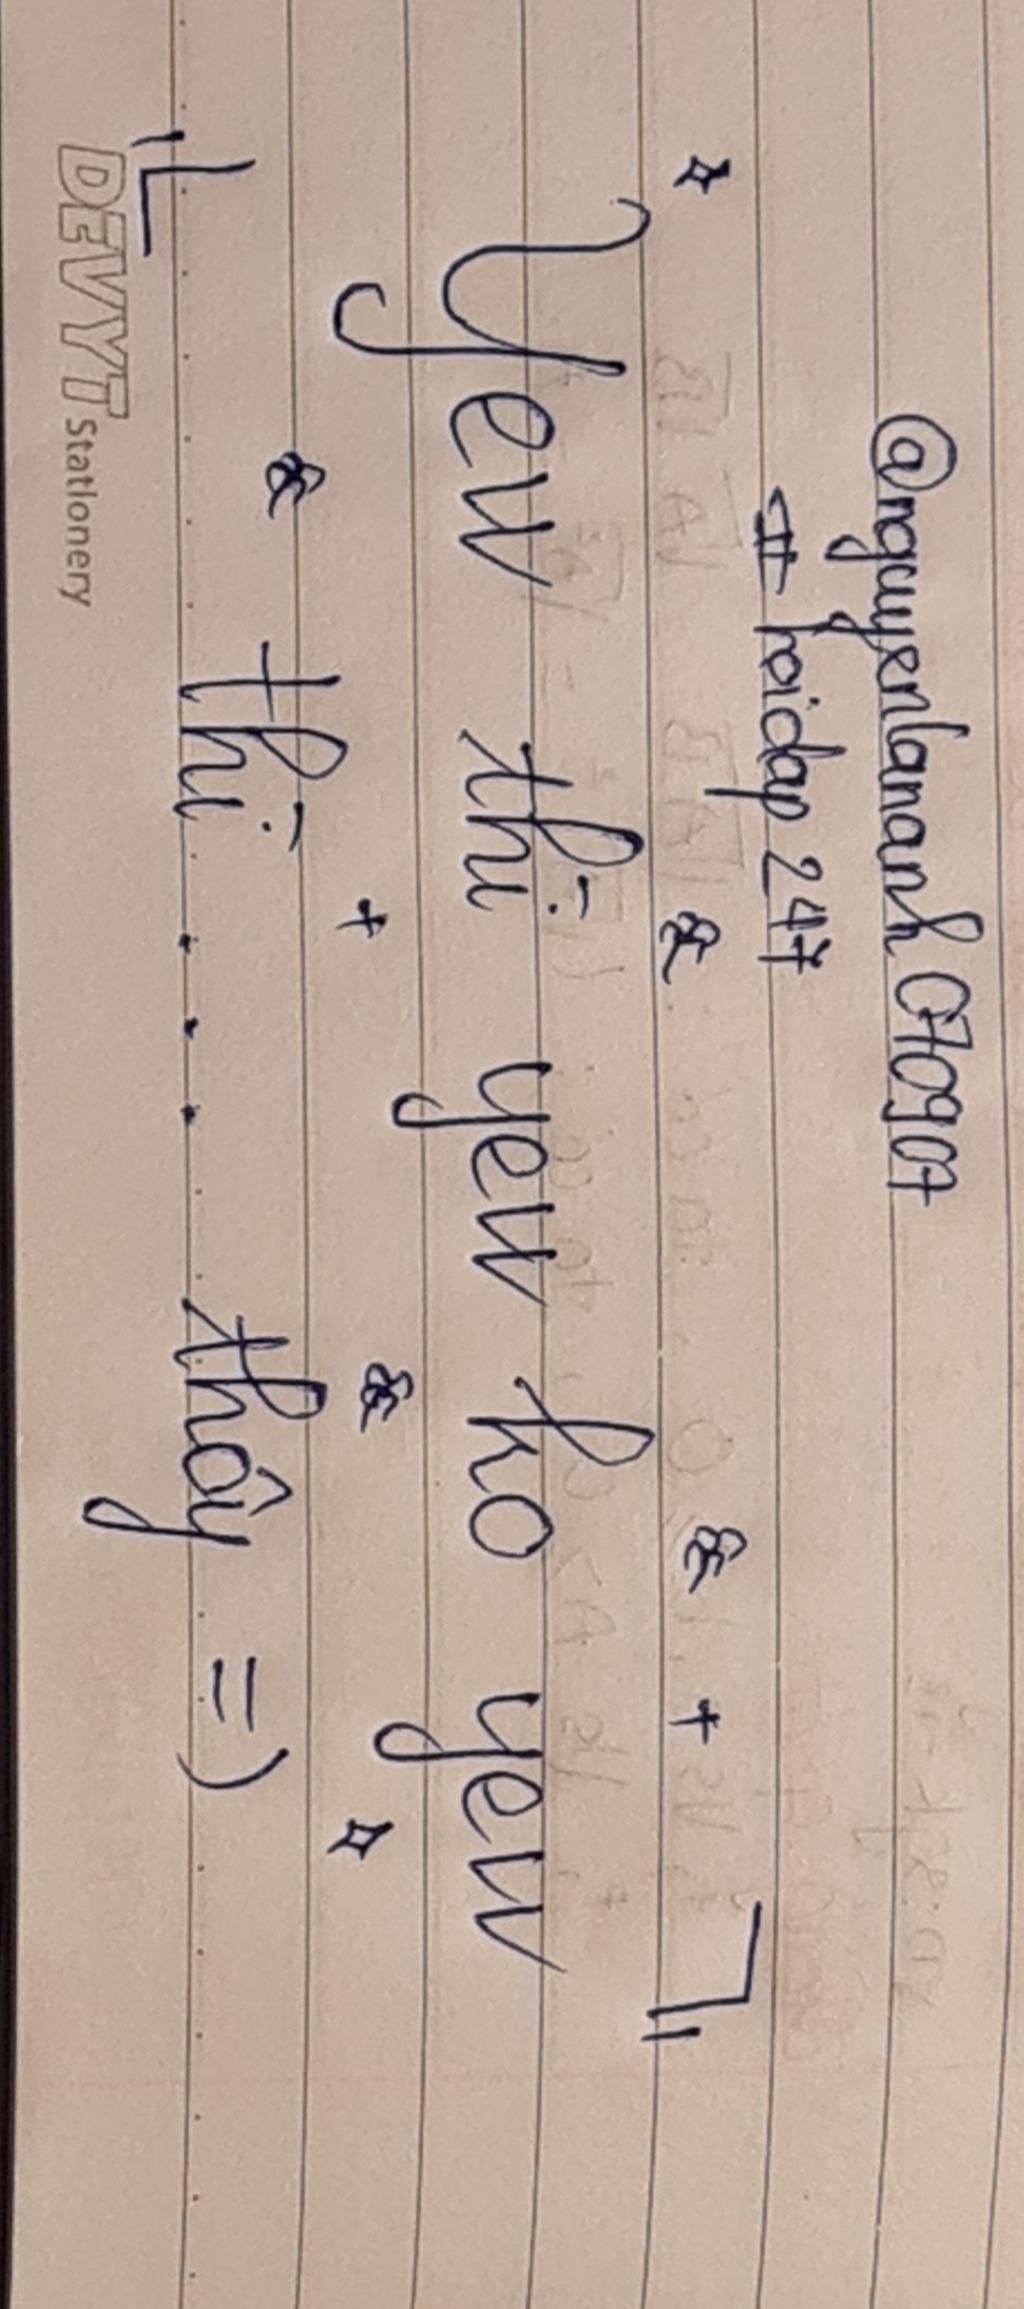 @nguyenlananh070907
# hoidap 247
Yew thì yew ko yew
thì .... thôy =)
DEVYT Stationery